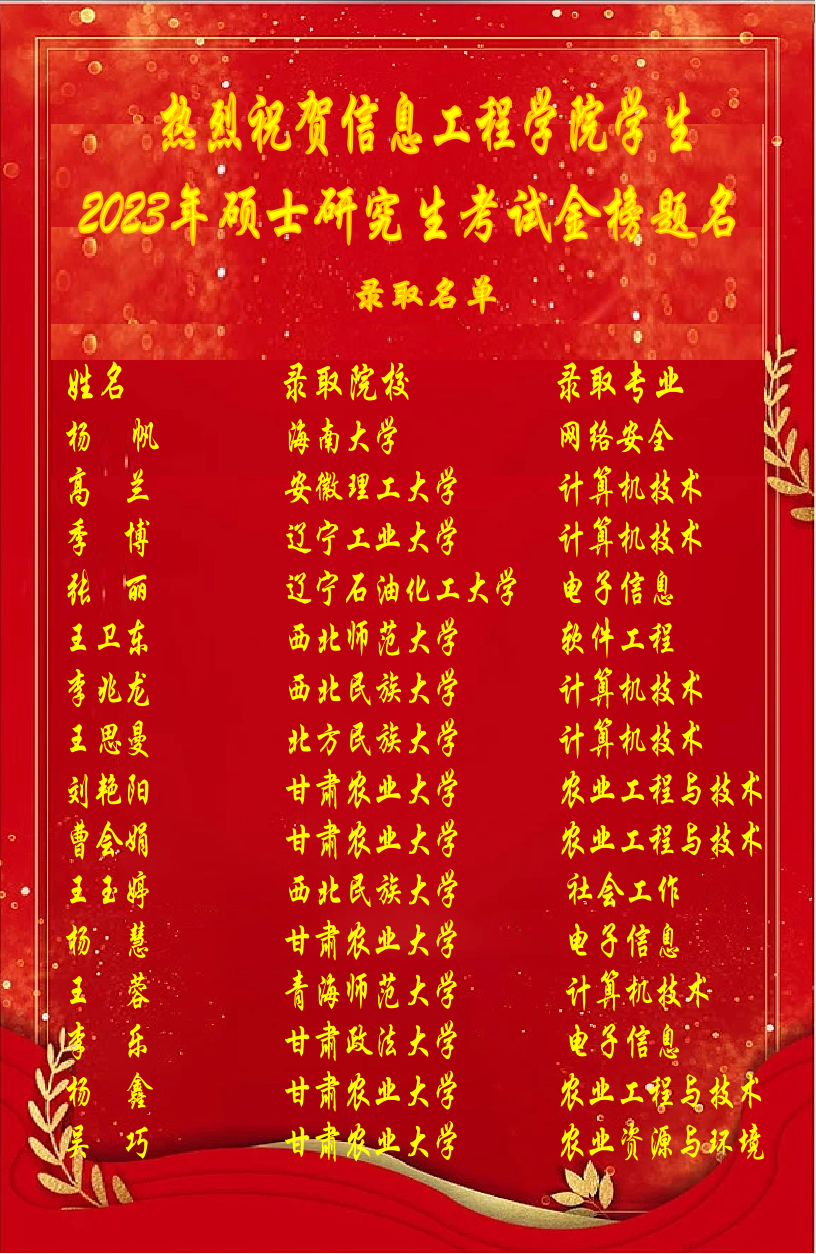 热烈祝贺信息工程学院学生
2023年硕士研究生考试金榜题名
录取名单
姓名 录取院校 录取专业
杨 帆 海南大学 网络安全
高 兰 安徽理工大学 计算机技术
季 博 辽宁工业大学 计算机技术
张 丽 辽宁石油化工大学 电子信息
王卫东 西北师范大学 软件工程
李兆龙 西北民族大学 计算机技术
王思曼 北方民族大学 计算机技术
刘艳阳 甘肃农业大学 农业工程与技术
曹会娟 甘肃农业大学 农业工程与技术
王玉婷 西北民族大学 社会工作
杨 慧 甘肃农业大学 电子信息
王 蓉 青海师范大学 计算机技术
李 乐 甘肃政法大学 电子信息
杨 鑫 甘肃农业大学 农业工程与技术
吴 巧 甘肃农业大学 农业资源与环境